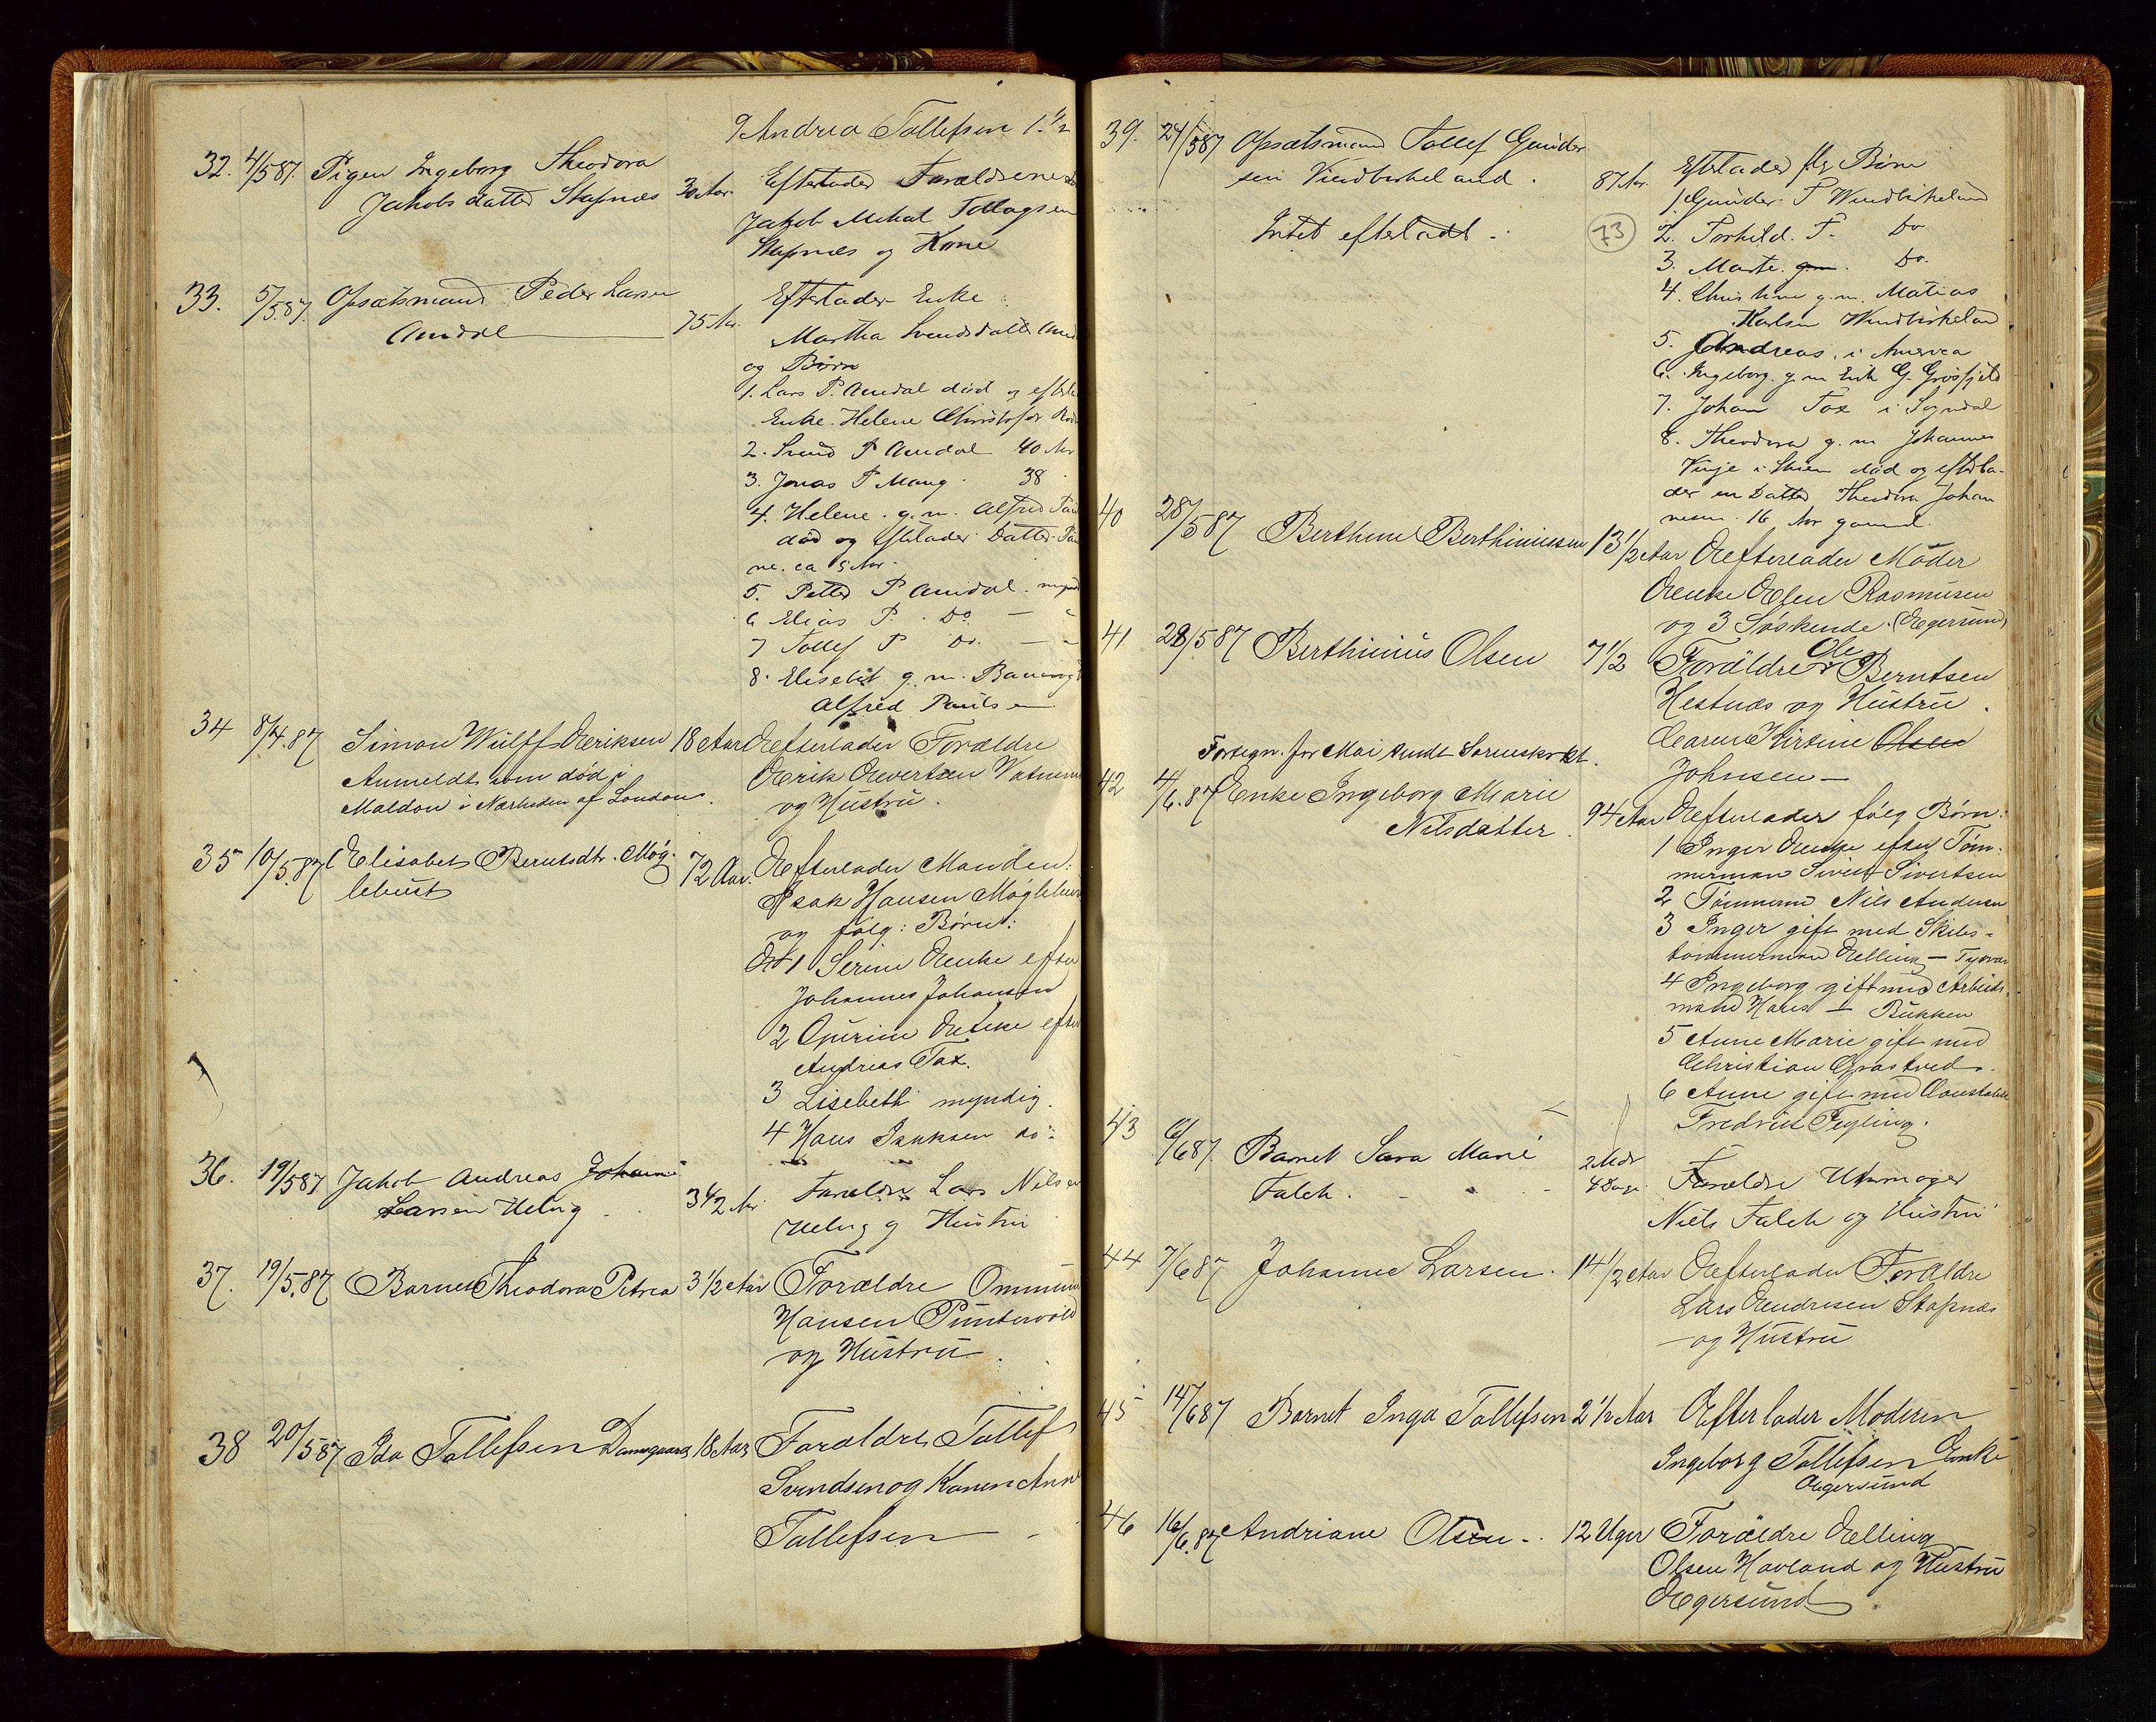 9 Andrea Tollefsen 1 1/2
32. 4/5 87. Pigen Ingeborg Theodora
Jakobsdatter Stapnæs 30 Aar.
Efterlader Forældrene
Jakob Mikal Tollagsen
Stapnæs og Kone
33. 5/5 87. Opsætsmand Peder Larsen
Amdal 75 Ar.
Efterlader Enke
Martha Svendsdatter Am
og Børn
1. Lars P. Amdal død og efterla
Enke. Helene Christofer
2. Svend P Amdal 40 Ar
3. Jonas P Mang 38
4. Helene. g. m. Alfred
død og Efterlader Datter
ne. ca 5 Ar.
5. Petter P Amdal. mynd
6 Elias P. Do. — "
7 Tollef P Do. — "
8. Elisabet g. m.
Alfred Paulsen
34 8/4.87 Simon Wulff Eriksen 18 Aar
Anmeldt som død i
Maldon i Nærheden af London.
Efterlader Forældre
Erik Evertsen Vatnem
og Hustru.
35 10/5.87 Elisabet Berntsdtr. Møg-
lebust 72 Aar.
Efterlader Manden:
Isak Hansen Møglebus
og følg: Børn:
1 Serine Enke efter
Johannes Johansen
2 Gurine Enke efter
Andreas Tax.
3 Lisebeth myndig.
4 Hans Isaksen do.
36. 19/5 87 Jakob Andreas Johanne
Larsen Helvig 3 1/2 Ar
Forældre Lars Nilsen
Helvig og Hustru
37. 19/5.87 Barnet Theodora Petrea 3 1/2 Aar
Forældre Ommun
Hansen Puntervold
og Hustru.
38 20/5 87 Ida Tollefsen Damsgaard 18 Aar
Forældre Tollef
Svendsen og Karen Anne
Tollefsen
39. 24/5 87 Opsætsmand Tollef Gunder
sen Vindbirkeland. 87 Ar.
Intet efterladt.
73
Efterlader flg Børn
1. Gunder T Windbirkeland
2. Torkild. T. Do
3. Marte. g.m. Do.
4. Christine g. m. Matias
Karlsen Windbirkeland.
5. Andreas. i America
6. Ingeborg. g. m Erik G. Grøsfjeld
7. Johan Tox i Sogndal
8. Theodora g. m Johannes
Vinje i Skien død og efterla-
der en Datter Theodora Johan
nesen. 16 Ar gammel.
40 28/5 87 Berthine Berthiniussen 13 1/2 Aar
Efterlader Moder
Enke Elen Rasmusen
og 3 Søskende. (Egersund)
41 28/5 87 Berthinius Olsen 7 1/2
Forældre Ole Berntsen
Hestnæs og Hustru.
Caren Kirstine Olsen
Johnsen —
Fortegn. for Mai sendt Sorenskrivt.
42 4/6.87 Enke Ingeborg Marie
Nilsdatter. 94 Aar
Efterlader følg Børn:
1 Inger Enke efter Tøm-
merman Sivert Sivertsen
2 Tømmerm Nils Andersen
3 Inger gift med Skibs-
tømmerman Elling — Tysvær
4 Ingeborg gift med Arbeids-
mand Hans — Bukken
5 Anne Marie gift med
Christian Grastved.
6 Anne gift med Constabel
Fredrik Fegling.
43 6/6 87. Barnet Sara Marie
Falch. 2 Mdr
4 Dage.
Forældre Uhrmager
Niels Falch og Hustru
44 7/6 87 Johanne Larsen. 14 1/2 Aar
Efterlader Forældre
Lars Endresen Stapnæs
og Hustru
45 14/6 87 Barnet Inga Tollefsen 2 1/2 Aar
Efterlader Moderen
Ingeborg Tollefsen Enke
Egersund
46 16/6.87 Andriane Olsen. 12 Uger
Forældre Elling
Olsen Havland og Hustru
Egersund